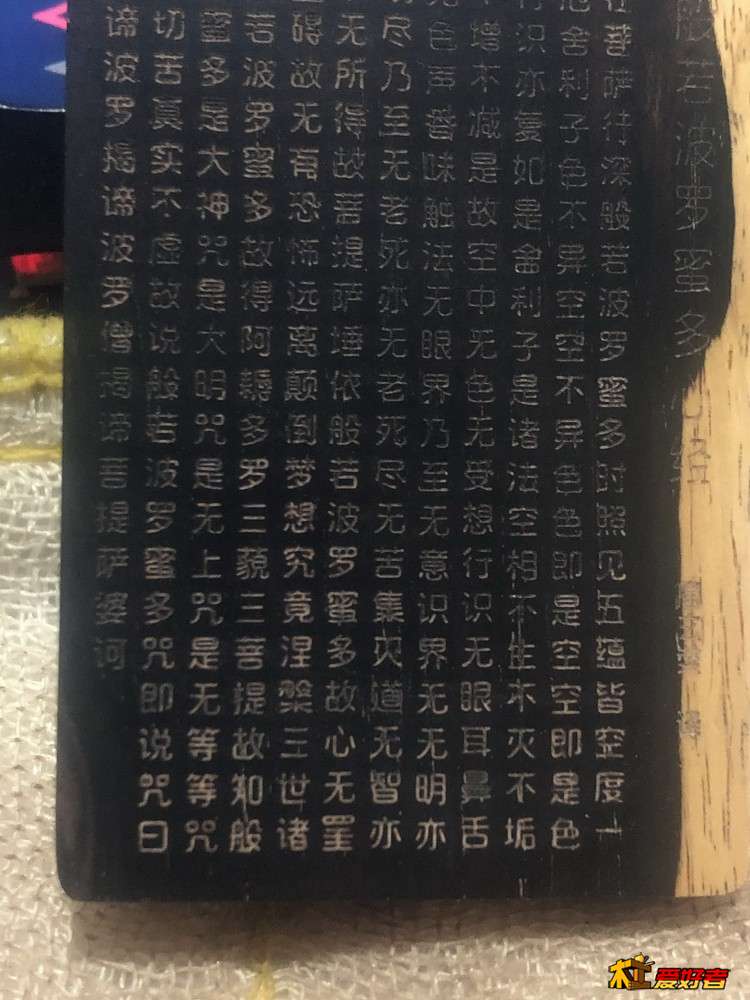 般若波罗蜜多心经
在菩萨行深般若波罗蜜多时照见五蕴皆空度一
厄舍利子色不异空空不异色色即是空空即是色
行识亦复如是舍利子是诸法空相不生不灭不垢
不增不减是故空中无色无受想行识无眼耳鼻舌
无色声香味触法无眼界乃至无意识界无无明亦
尽乃至无老死亦无老死尽无苦集灭道无智亦
无所得故菩提萨埵依般若波罗蜜多故心无罣
碍故无有恐怖远离颠倒梦想究竟涅槃三世诸
若波罗蜜多故得阿耨多罗三藐三菩提故知般
蜜多是大神咒是大明咒是无上咒是无等等咒
切苦真实不虚故说般若波罗蜜多咒即说咒曰
谛波罗揭谛波罗僧揭谛菩提萨婆诃
木工爱好者